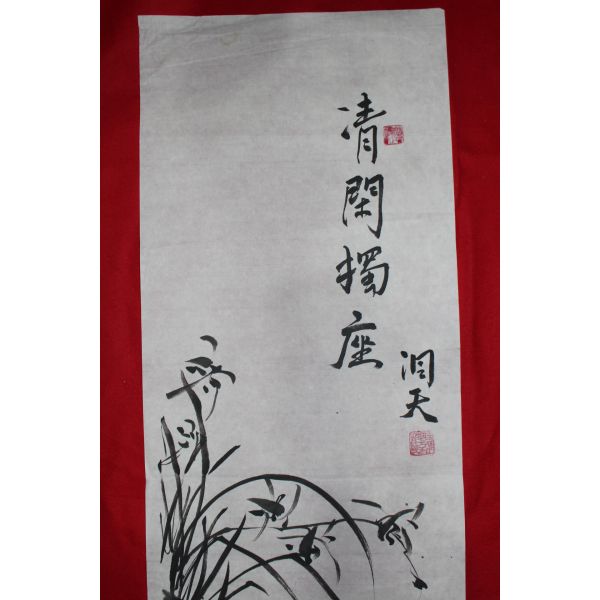 清閑獨座
泪天